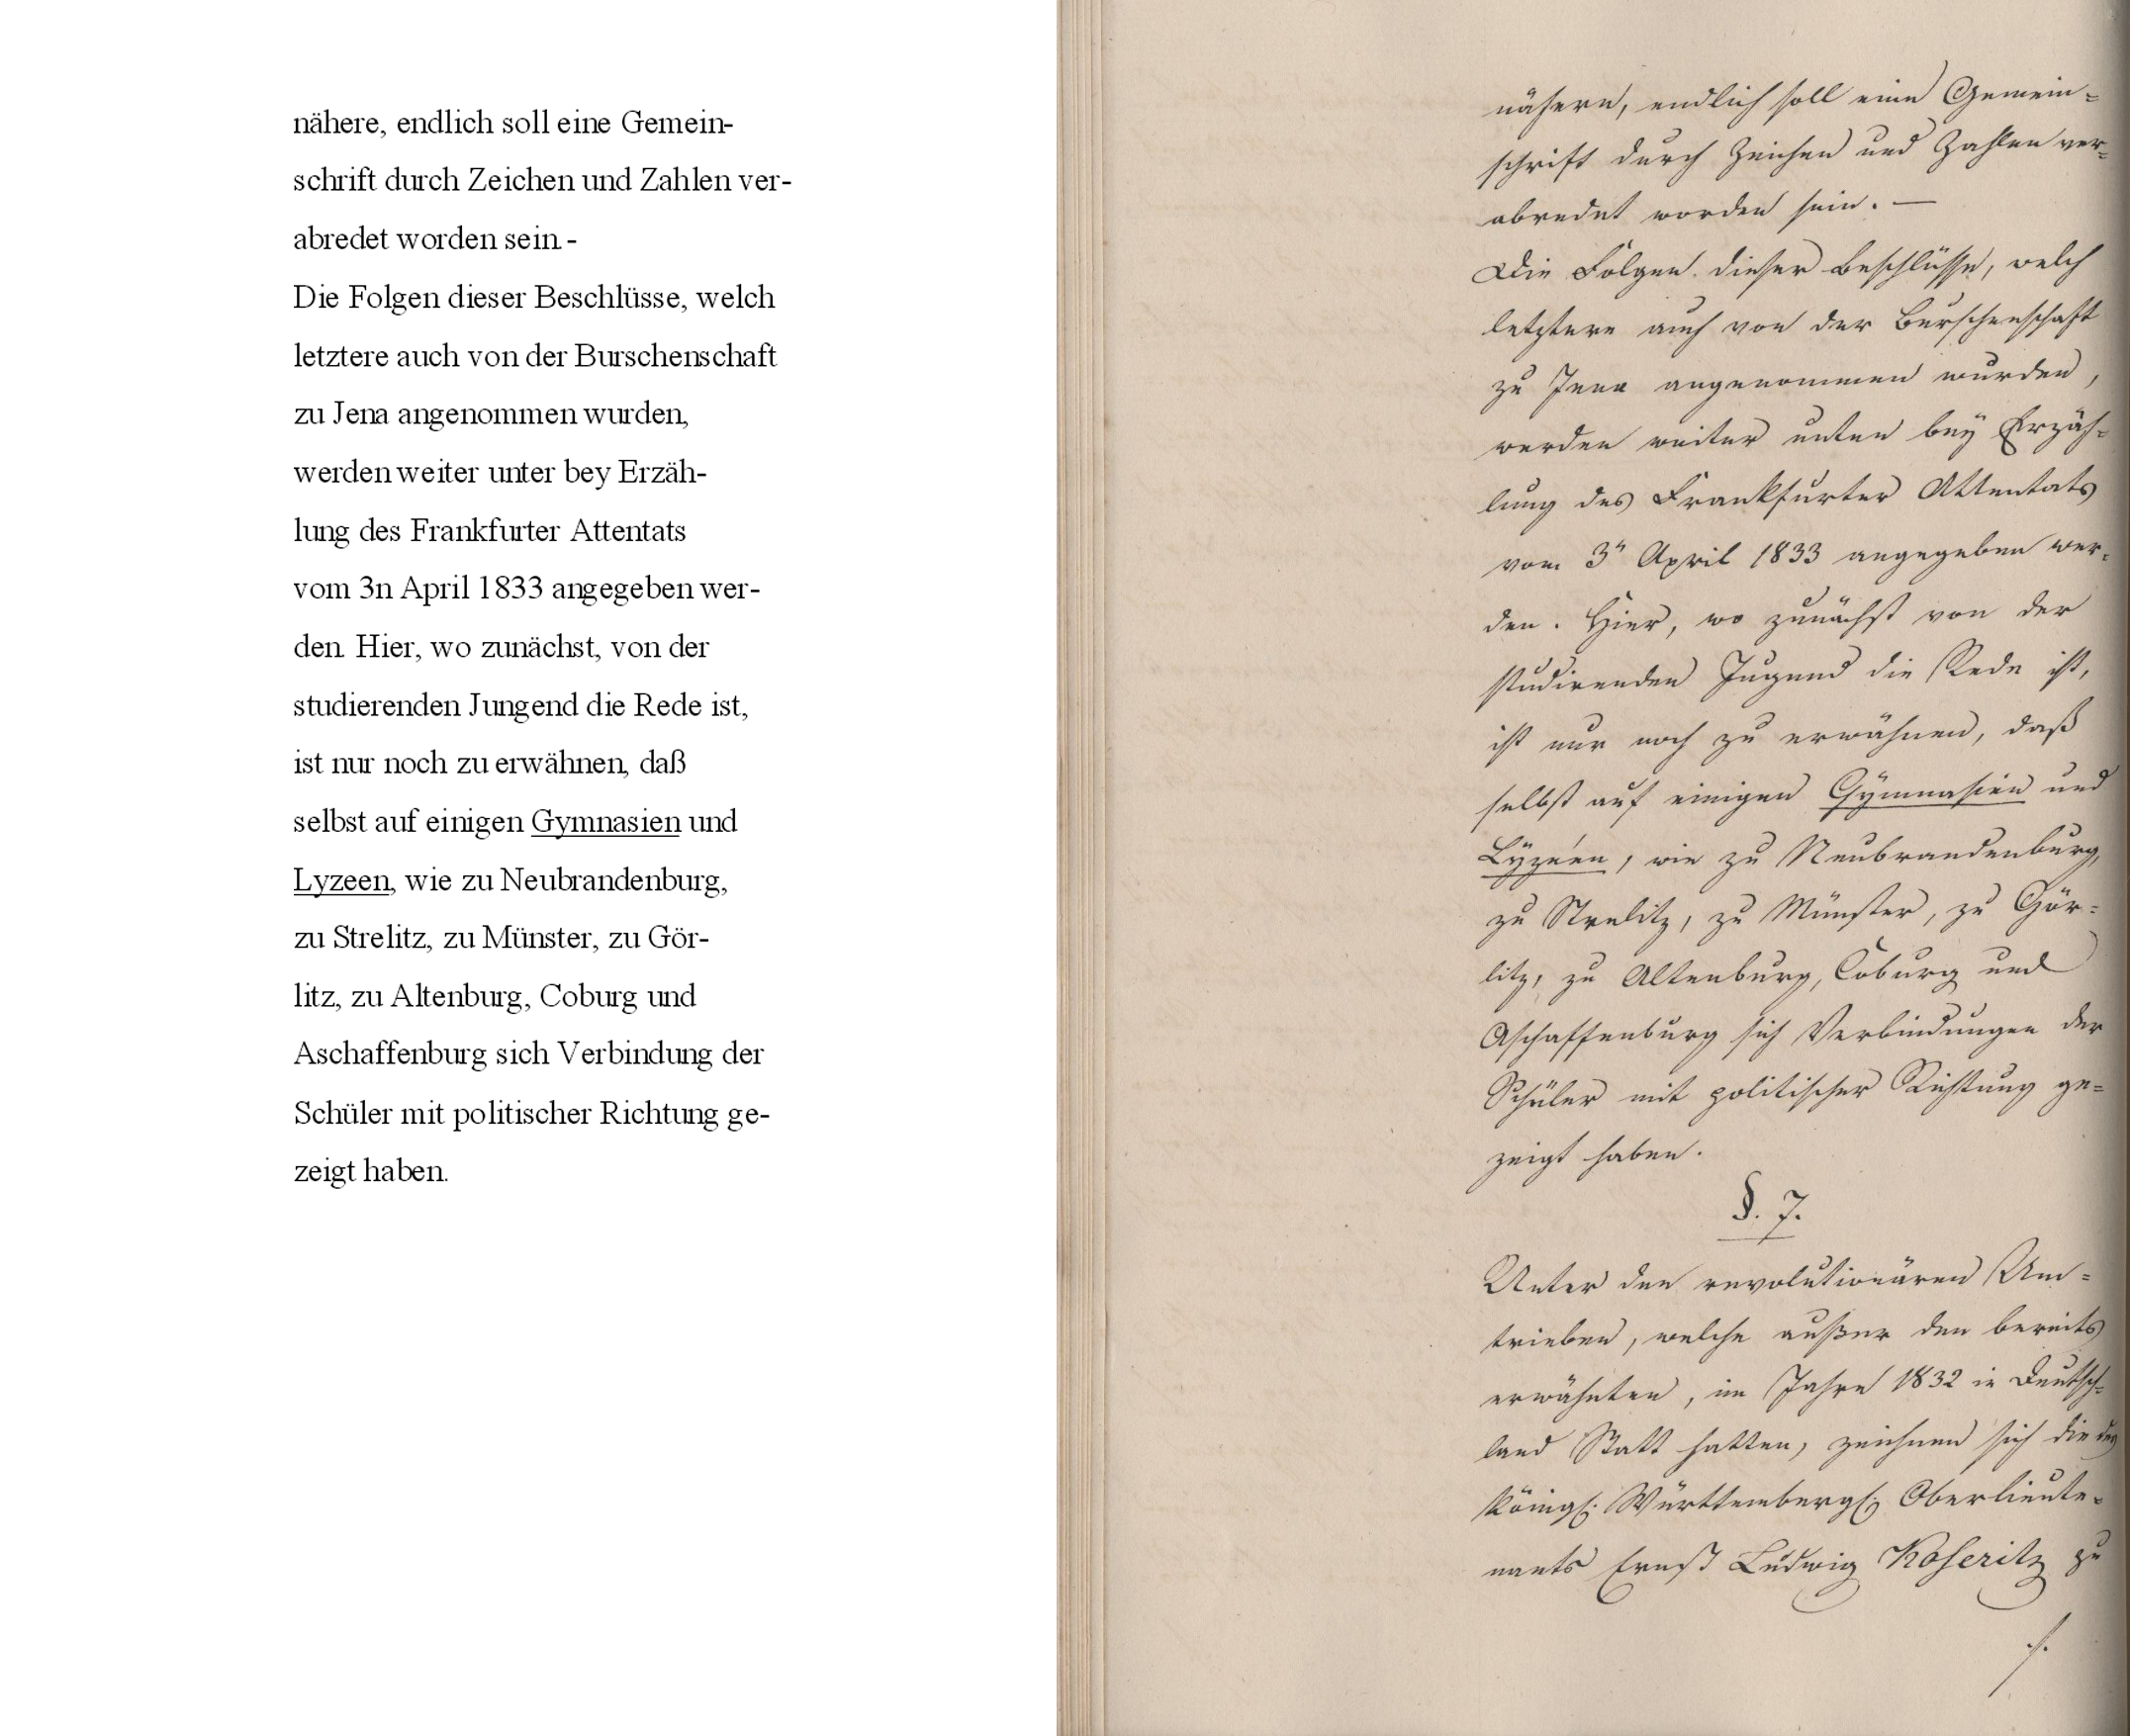 nähere, endlich soll eine Gemein-
schrift durch Zeichen und Zahlen ver-
abredet worden sein -
Die Folgen dieser Beschlüsse, welch
letztere auch von der Burschenschaft
zu Jena angenommen wurden,
werden weiter unter bey Erzäh-
lung des Frankfurter Attentats
vom 3n April 1833 angegeben wer-
den. Hier, wo zunächst, von der
studierenden Jungend die Rede ist,
ist nur noch zu erwähnen, daß
selbst auf einigen Gymnasien und
Lyzeen, wie zu Neubrandenburg,
zu Strelitz, zu Münster, zu Gör-
litz, zu Altenburg, Coburg und
Aschaffenburg sich Verbindung der
Schüler mit politischer Richtung ge-
zeigt haben.
nähern, endlich soll eine Gemein=
schrift durch Zeichen und Zahlen ver=
abredet worden sein. —
Die Folgen dieser Beschlüsse, welch
letztere auch von der Burschenschaft
zu Jena angenommen wurden,
werden weiter unten bey Erzäh=
lung des Frankfurter Attentats
vom 3n April 1833 angegeben wer=
den. Hier, wo zunächst von der
studirenden Jugend die Rede ist,
ist nur noch zu erwähnen, daß
selbst auf einigen Gymnasien und
Lyzéen, wie zu Neubrandenburg,
zu Strelitz, zu Münster, zu Gör=
litz, zu Altenburg, Coburg und
Aschaffenburg sich Verbindungen der
Schüler mit politischer Richtung ge=
zeigt haben.
§. 7.
Unter den revolutionären Um=
trieben, welche außer den bereits
erwähnten, im Jahre 1832 in Deutsch=
land Statt hatten, zeichnen sich die des
Königl: Württembergl: Oberlieute=
nants Ernst Ludwig Koseritz zu